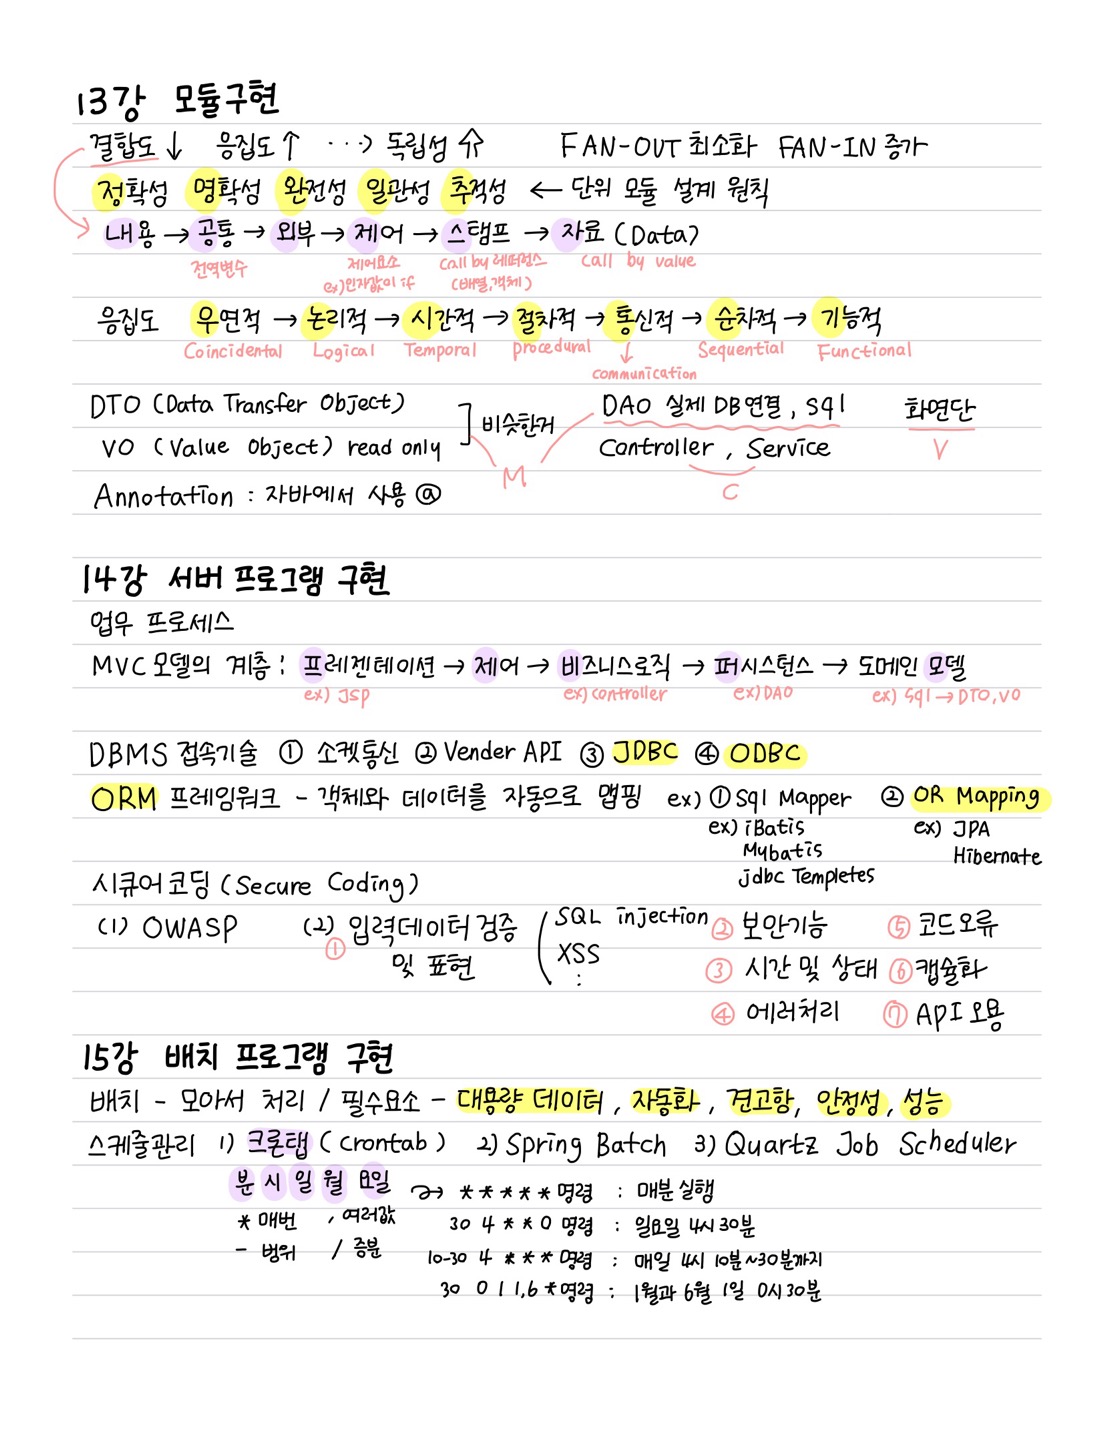 13강 모듈구현
결합도 ↓ 응집도 ↑ ···> 독립성 ⇑ FAN-OUT 최소화 FAN-IN 증가
정확성 명확성 완전성 일관성 추적성 ← 단위 모듈 설계 원칙
내용 → 공통 → 외부 → 제어 → 스탬프 → 자료 (Data)
전역변수 제어요소 Call by 레퍼런스 Call by value
ex) 인자값이 if (배열,객체)
응집도 우연적 → 논리적 → 시간적 → 절차적 → 통신적 → 순차적 → 기능적
Coincidental Logical Temporal procedural ↓ Sequential Functional
communication
DTO (Data Transfer Object) ] 비슷한거 DAO 실제 DB연결, sql 화면단
VO (Value Object) read only Controller , Service V
M C
Annotation : 자바에서 사용 @
14강 서버 프로그램 구현
업무 프로세스
MVC 모델의 계층 : 프레젠테이션 → 제어 → 비즈니스로직 → 퍼시스턴스 → 도메인 모델
ex) JSP ex) controller ex) DAO ex) sql → DTO, VO
DBMS 접속기술 ① 소켓통신 ② Vender API ③ JDBC ④ ODBC
ORM 프레임워크 - 객체와 데이터를 자동으로 맵핑 ex) ① Sql Mapper ② OR Mapping
ex) iBatis ex) JPA
Mybatis Hibernate
jdbc Templetes
시큐어 코딩 (Secure Coding)
(1) OWASP (2) 입력데이터 검증 ( SQL injection ② 보안기능 ⑤ 코드오류
① 및 표현 XSS ③ 시간 및 상태 ⑥ 캡슐화
: ④ 에러처리 ⑦ API 오용
15강 배치 프로그램 구현
배치 - 모아서 처리 / 필수요소 - 대용량 데이터, 자동화, 견고함, 안정성, 성능
스케줄관리 1) 크론탭 (crontab) 2) Spring Batch 3) Quartz Job Scheduler
분 시 일 월 요일 → * * * * * 명령 : 매분 실행
* 매번 , 여러값 30 4 * * 0 명령 : 일요일 4시 30분
- 범위 / 증분 10-30 4 * * * 명령 : 매일 4시 10분~30분까지
30 0 1 1,6 * 명령 : 1월과 6월 1일 0시 30분